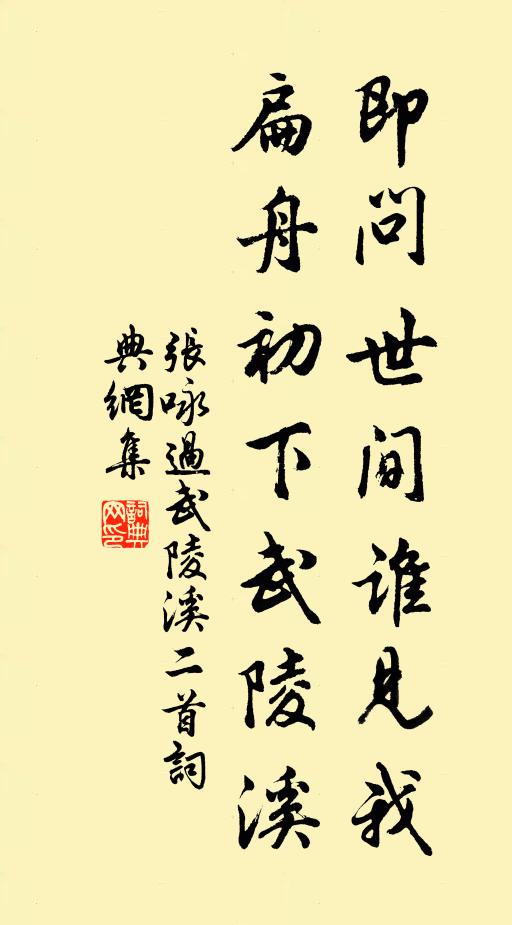 即問世間誰見我
扁舟初下武陵溪
張咏過武陵溪二首詞
典網集
詞典网印